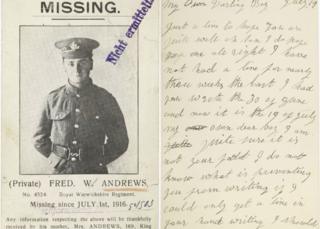 MISSING.
Nicht ermittelt
(Private) FRED. W. ANDREWS,
No. 4524 Royal Warwickshire Regiment.
Missing since JULY 1st, 1916.
Any information respecting the above will be thankfully
received by his mother, Mrs. ANDREWS, 169, King
My Own Darling Boy July 19
Just a line to hope you are
quite well as I do hope
you are alright I have
not had a line for nearly
three weeks the last I had
you wrote the 30 of June
and now it is the 19 of July
my own dear boy I am
quite sure it is
not your fault I do not
know what is preventing
you from writing if I
could only get a line in
your hand writing I should